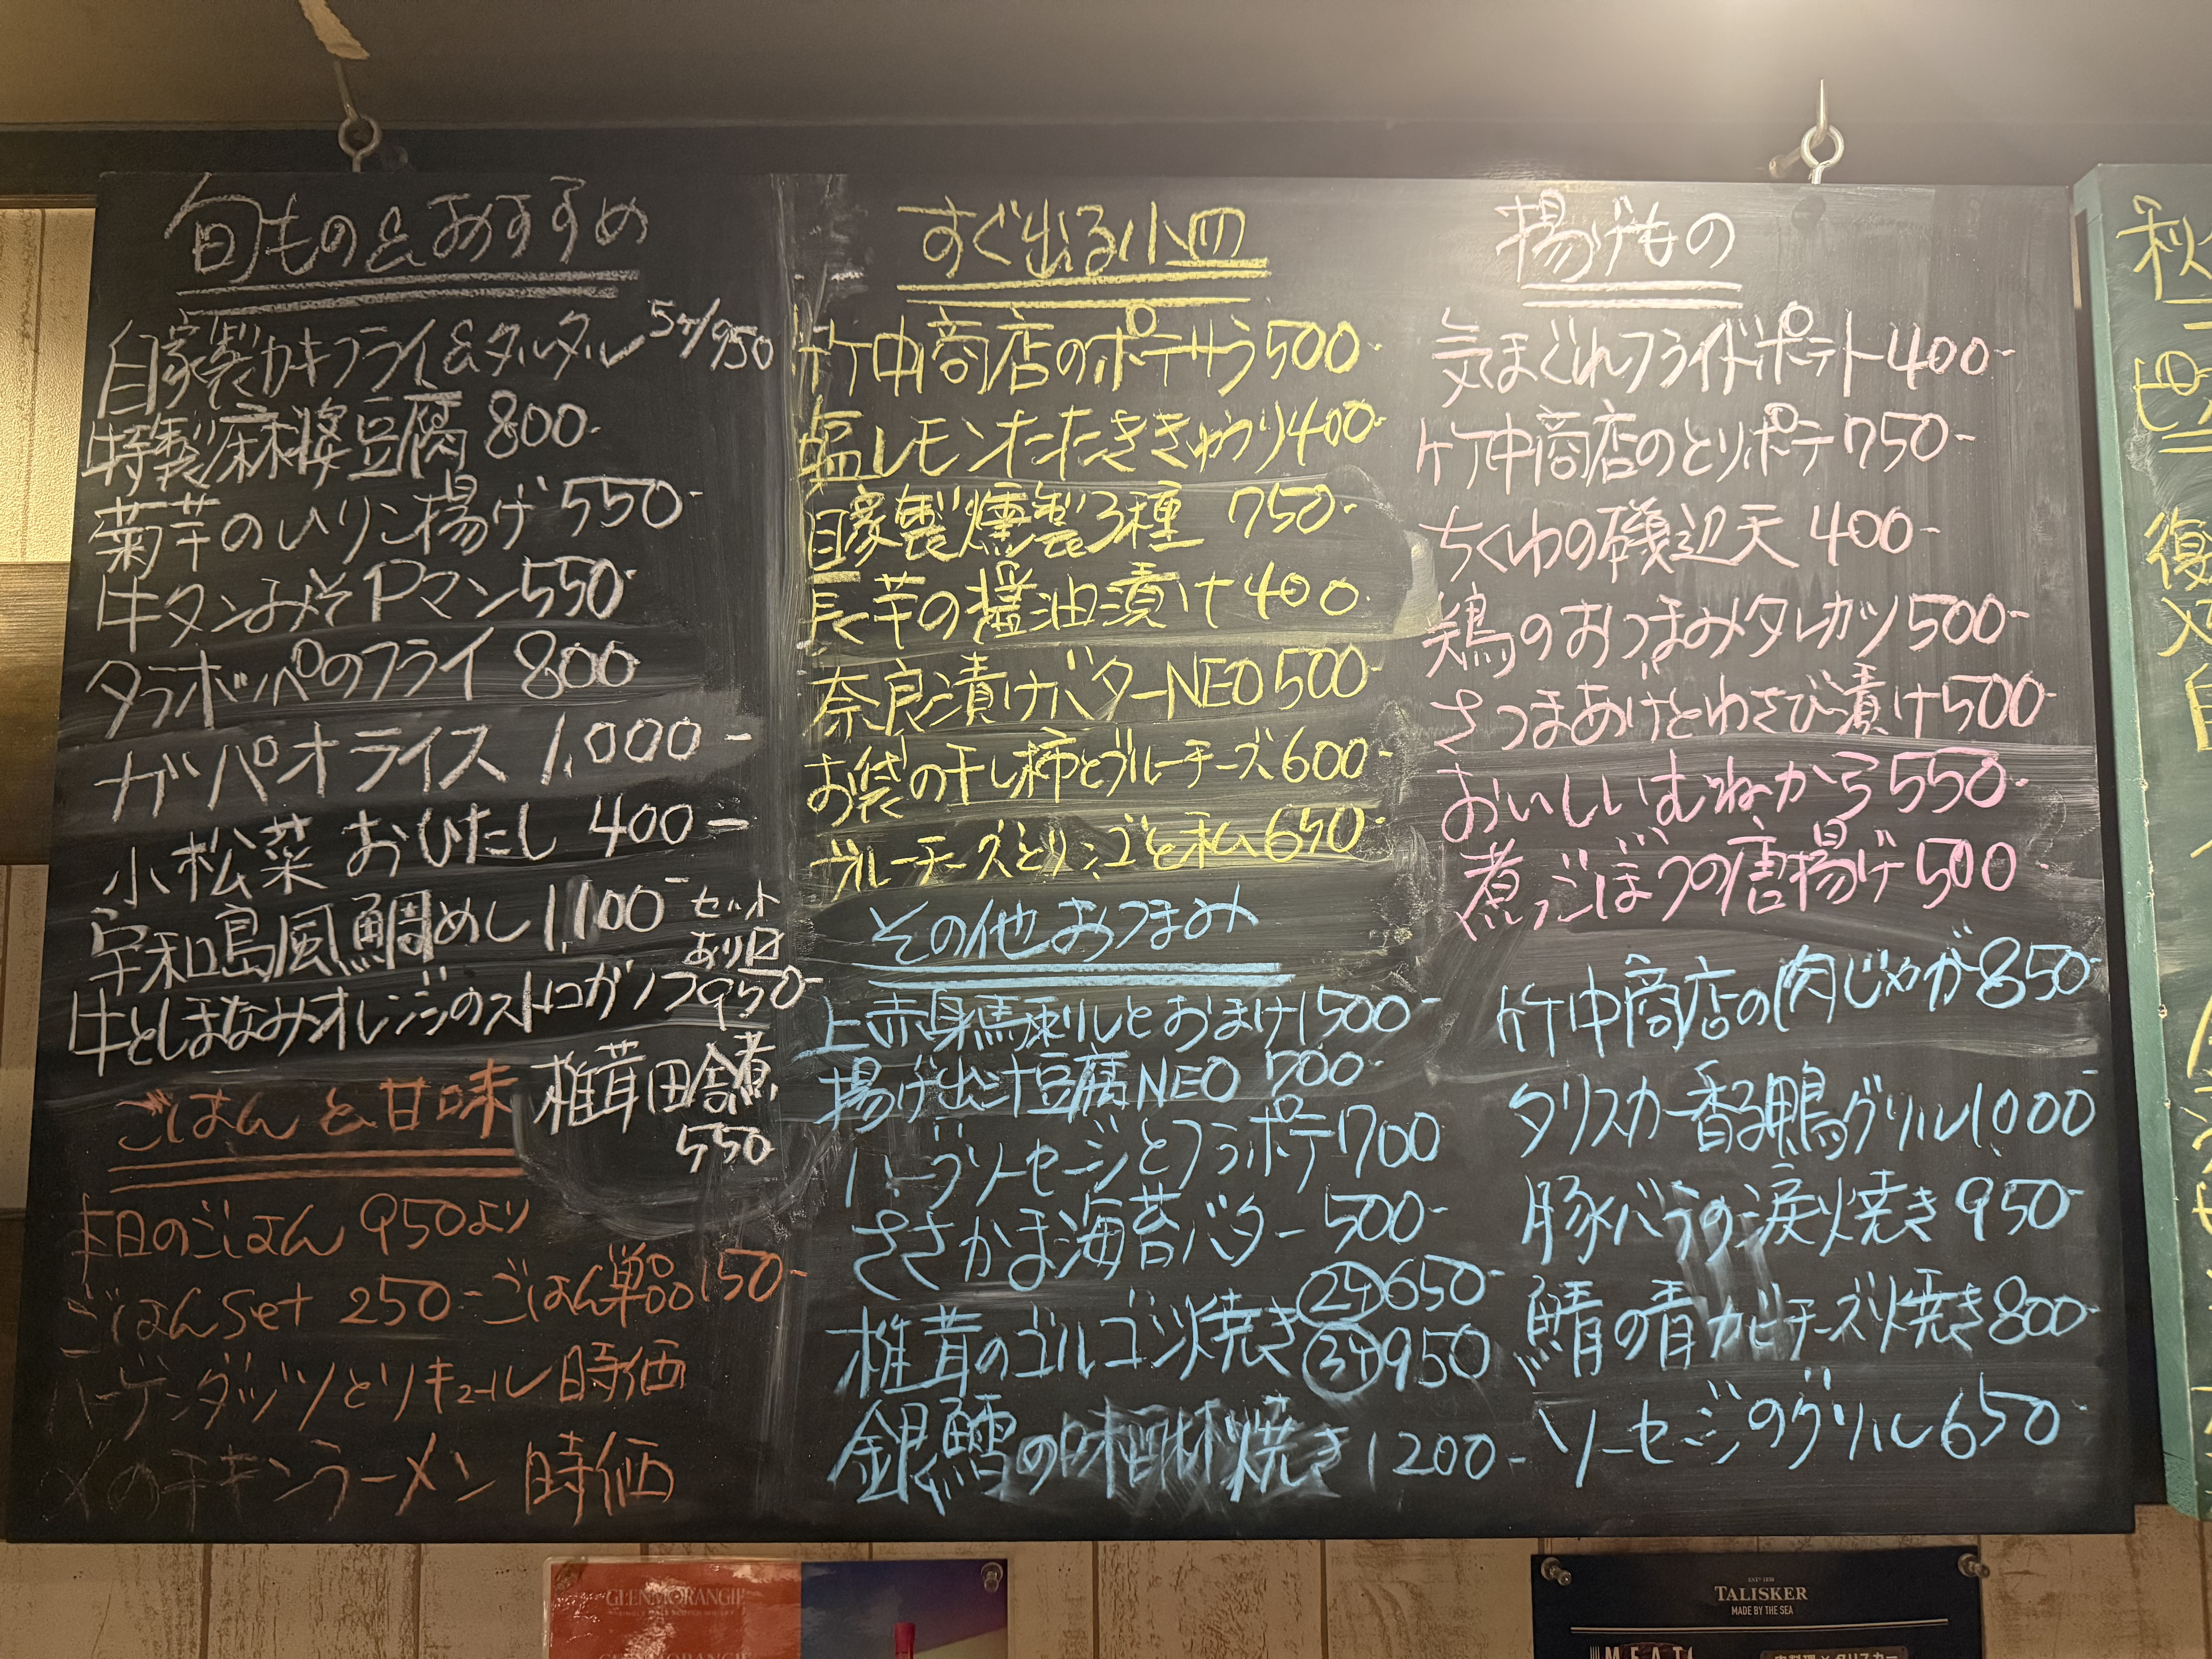 旬もの&おすすめ
自家製カキフライ&タルタル 5ヶ/950
特製麻婆豆腐 800-
菊芋のいりこ揚げ 550-
牛タンみそPマン 550-
タラポッパのフライ 800
ガパオライス 1,000-
小松菜 おひたし 400-
宇和島風鯛めし 1,100- セット
あり〼
牛としまなみオレンジのストロガノフ 950-
椎茸田舎煮
550
ごはんと甘味
本日のごはん 950より
ごはんset 250- ごはん単品150-
ハーゲンダッツとリキュール 時価
〆のチキンラーメン 時価
すぐ出る小皿
竹中商店のポテサラ500-
塩レモンたたききゅうり400-
自家製燻製3種 750-
長芋の醤油漬け400
奈良漬けバターNEO500-
お袋の干し柿とブルーチーズ600-
ブルーチーズとリンゴと私650-
その他おつまみ
上赤身馬刺しとおまけ1500-
揚げ出汁豆腐NEO 700-
ハーブソーセージとフラポテ700
ささかま海苔バター 500-
椎茸のゴルゴンゾ焼き 2ヶ 650-
3ヶ 950
銀鱈の味醂焼き1200-
揚げもの
気まぐれフライドポテト400-
竹中商店のとりポテ750-
ちくわの磯辺天 400-
鶏のおつまみタレカツ500-
さつまあげとわさび漬け500-
おいしいむねから550-
煮ごぼうの唐揚げ500
竹中商店の肉じゃが850-
タリスカー香る鴨グリル1000-
豚バラの涙焼き 950-
鯖の青カビチーズ焼き800-
ソーセージのグリル650-
秋
復
GLENMORANGIE
SINGLE MALT SCOTCH WHISKY
GLENMORANGIE
ESTD 1830
TALISKER
MADE BY THE SEA
MEAT